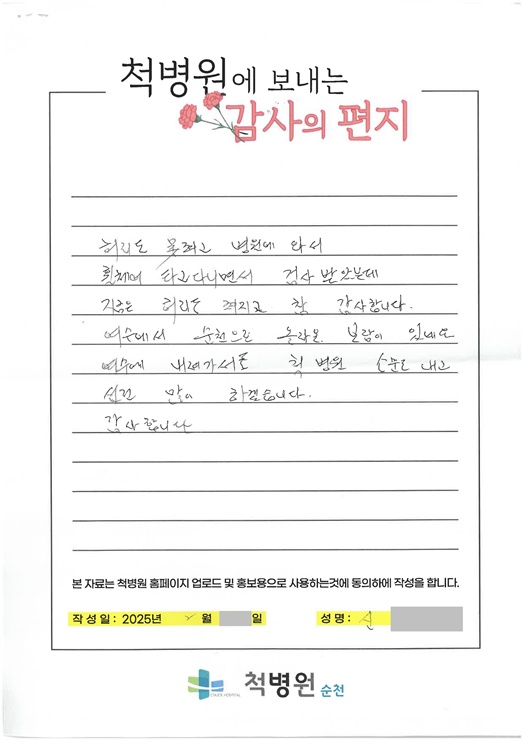 척병원에 보내는
감사의 편지
허리도 못펴고 병원에 와서
휠체어 타고다니면서 검사 받았는데
지금은 허리도 펴지고 참 감사합니다.
여수에서 순천으로 올라온 보람이 있네요
여수에 내려가서도 척병원 소문도 내고
선전 많이 하겠습니다.
감사합니다
본 자료는 척병원 홈페이지 업로드 및 홍보용으로 사용하는것에 동의하에 작성을 합니다.
작성일 : 2025년 월 일 성명 : 신
CHUCK HOSPITAL 척병원 순천